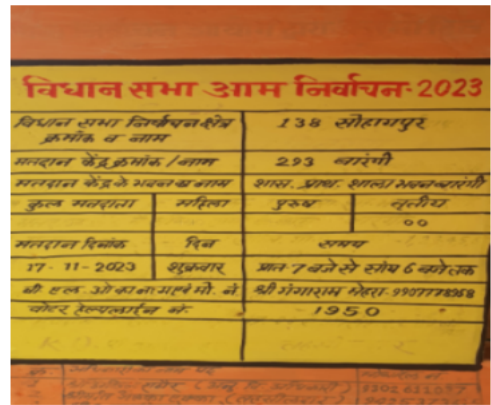 विधान सभा आम निर्वाचन-2023
विधान सभा निर्वाचन क्षेत्र क्रमांक व नाम 138 सोहागपुर
मतदान केंद्र क्रमांक / नाम 293 बारंगी
मतदान केंद्र के भवन का नाम शास. प्राथ. शाला भवन बारंगी
कुल मतदाता महिला पुरुष तृतीय
००
मतदान दिनांक दिन समय
17-11-2023 शुक्रवार प्रातः 7 बजे से सांय 6 बजे तक
बी एल. ओ का नाम एवं मो. नं श्री गंगाराम मेहरा
वोटर हेल्पलाईन नं. 1950